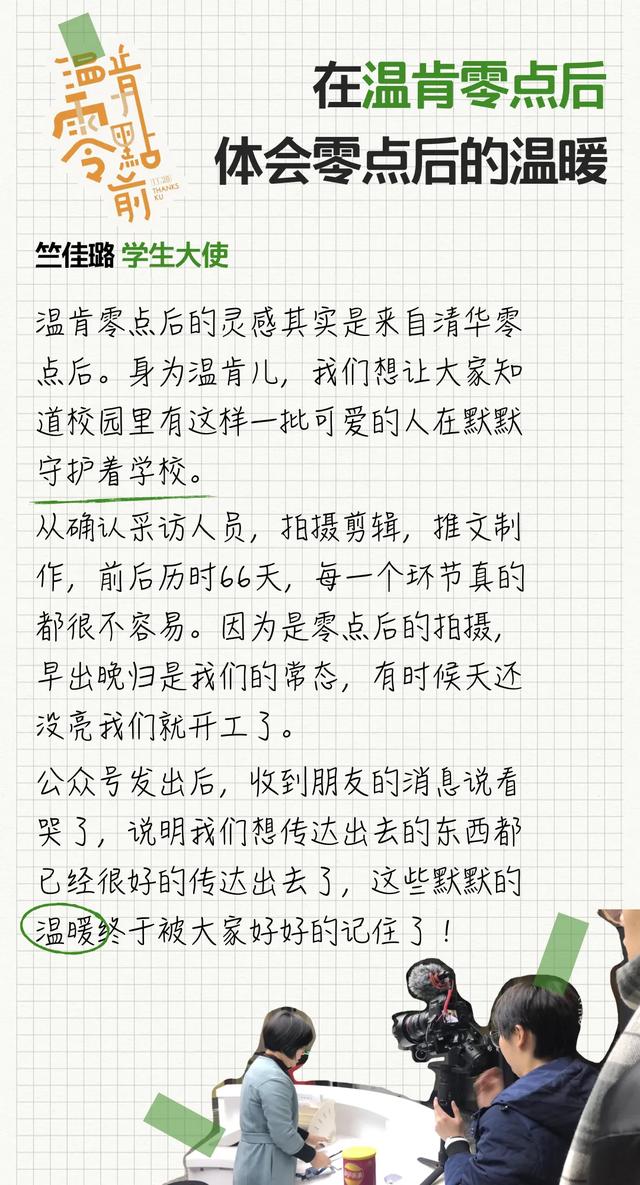 温肯
零點
前
11.28
THANKS
KU
在温肯零点后
体会零点后的温暖
竺佳璐 学生大使
温肯零点后的灵感其实是来自清华零
点后。身为温肯儿，我们想让大家知
道校园里有这样一批可爱的人在默默
守护着学校。
从确认采访人员，拍摄剪辑，推文制
作，前后历时66天，每一个环节真的
都很不容易。因为是零点后的拍摄，
早出晚归是我们的常态，有时候天还
没亮我们就开工了。
公众号发出后，收到朋友的消息说看
哭了，说明我们想传达出去的东西都
已经很好的传达出去了，这些默默的
温暖终于被大家好好的记住了！